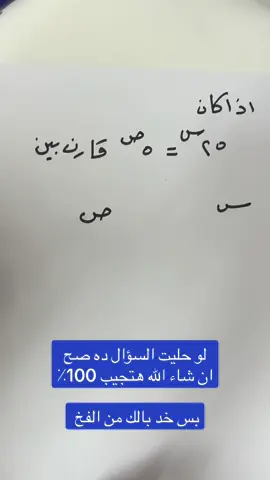 اذا كان
٢٥س = ٥ص قارن بين
س ص
لو حليت السؤال ده صح
ان شاء الله هتجيب 100٪
بس خد بالك من الفخ